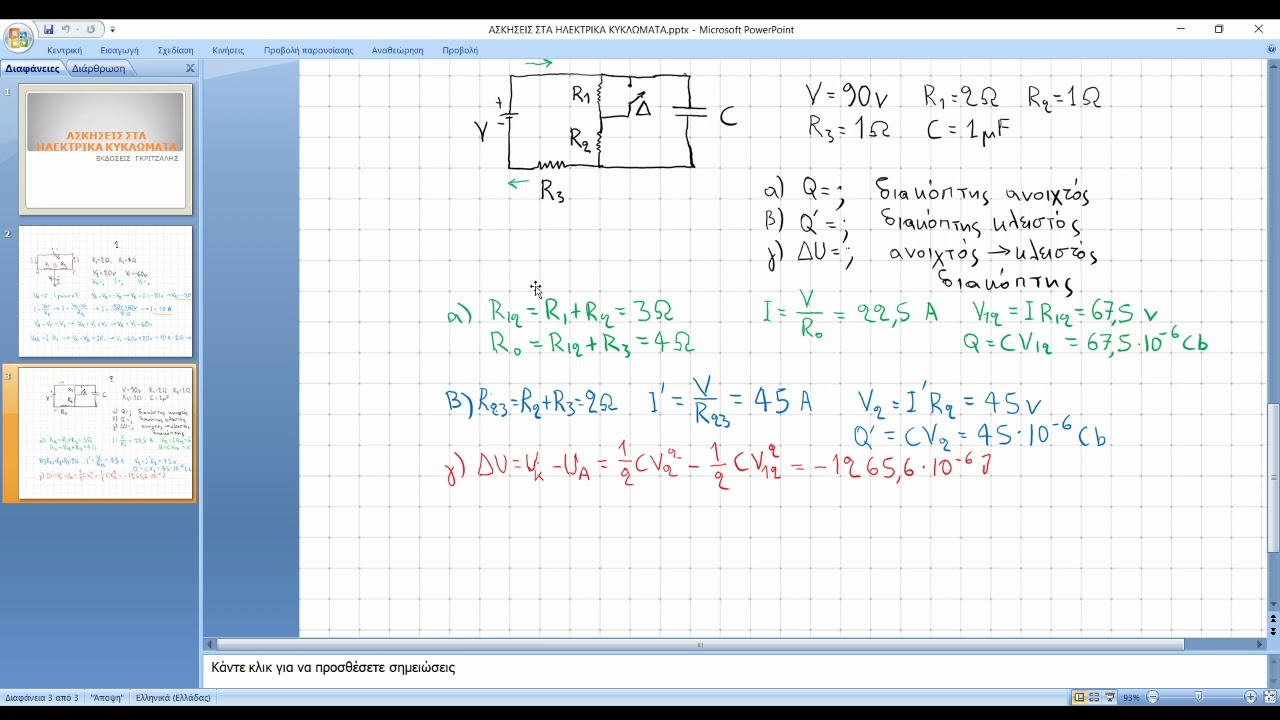 ΑΣΚΗΣΕΙΣ ΣΤΑ ΗΛΕΚΤΡΙΚΑ ΚΥΚΛΩΜΑΤΑ.pptx - Microsoft PowerPoint
Κεντρική Εισαγωγή Σχεδίαση Κινήσεις Προβολή παρουσίασης Αναθεώρηση Προβολή
Διαφάνειες Διάρθρωση
1
ΑΣΚΗΣΕΙΣ ΣΤΑ
ΗΛΕΚΤΡΙΚΑ ΚΥΚΛΩΜΑΤΑ
ΕΚΔΟΣΕΙΣ ΓΚΡΙΤΖΑΛΗΣ
2
3
R₁ Δ C
+ V −
R₂
R₃
V = 90v R₁=2Ω R₂=1Ω
R₃=1Ω C=1μF
α) Q=; διακόπτης ανοιχτός
β) Q'=; διακόπτης κλειστός
γ) ΔU=; ανοιχτός → κλειστός
διακόπτης
α) R₁₂=R₁+R₂=3Ω I=V/R₀=22,5 A V₁₂=IR₁₂=67,5 v
R₀=R₁₂+R₃=4Ω Q=CV₁₂=67,5·10⁻⁶Cb
β) R₂₃=R₂+R₃=2Ω I'=V/R₂₃=45 A V₂=I'R₂=45v
Q'=CV₂=45·10⁻⁶Cb
γ) ΔU=Uκ−U_A=1/2CV₂²−1/2CV₁₂²=−1265,6·10⁻⁶J
Κάντε κλικ για να προσθέσετε σημειώσεις
Διαφάνεια 3 από 3 "Άποψη" Ελληνικά (Ελλάδας) 93%